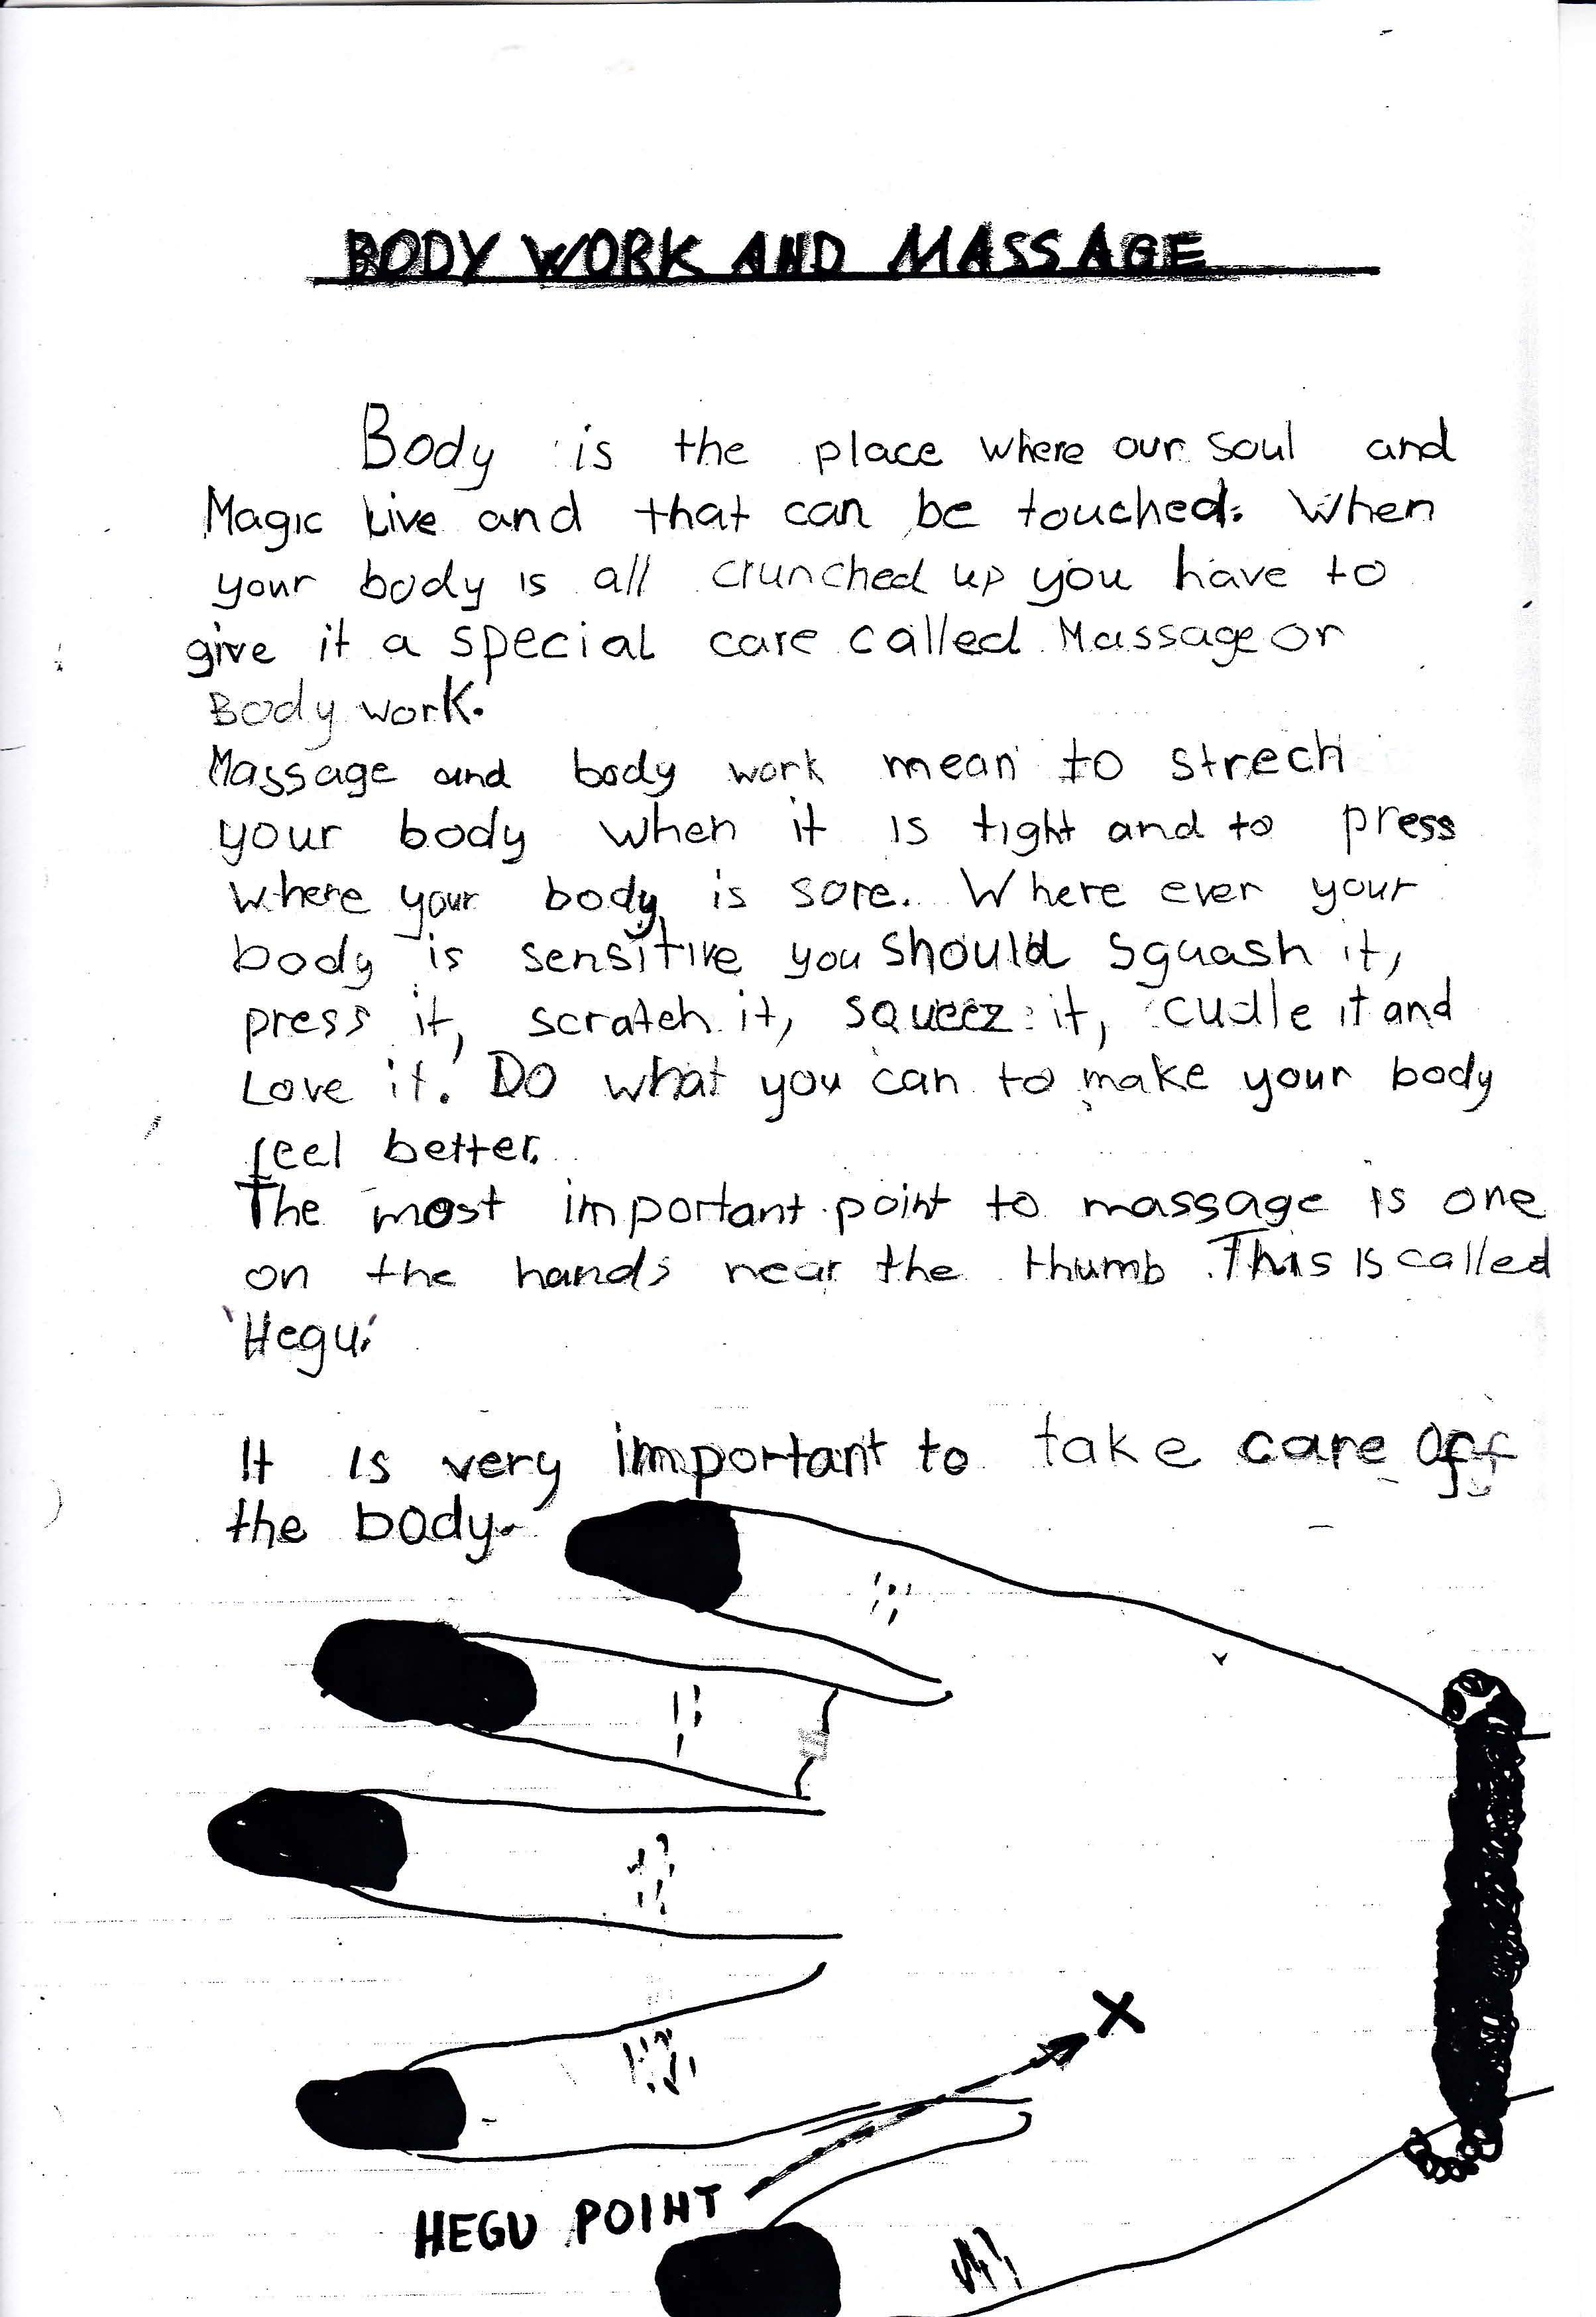 BODY WORK AND MASSAGE
Body is the place where our soul and
Magic Live and that can be touched. When
your body is all crunched up you have to
give it a special care called Massage or
Body work.
Massage and body work mean to strech
your body when it is tight and to press
where your body is sore. Where ever your
body is sensitive you should sguash it,
press it, scratch it, squeez it, cudle it and
Love it. Do what you can to make your body
feel better.
The most important point to massage is one
on the hands near the thumb. This is called
'Hegu'
It is very important to take care off
the body.
HEGU POINT